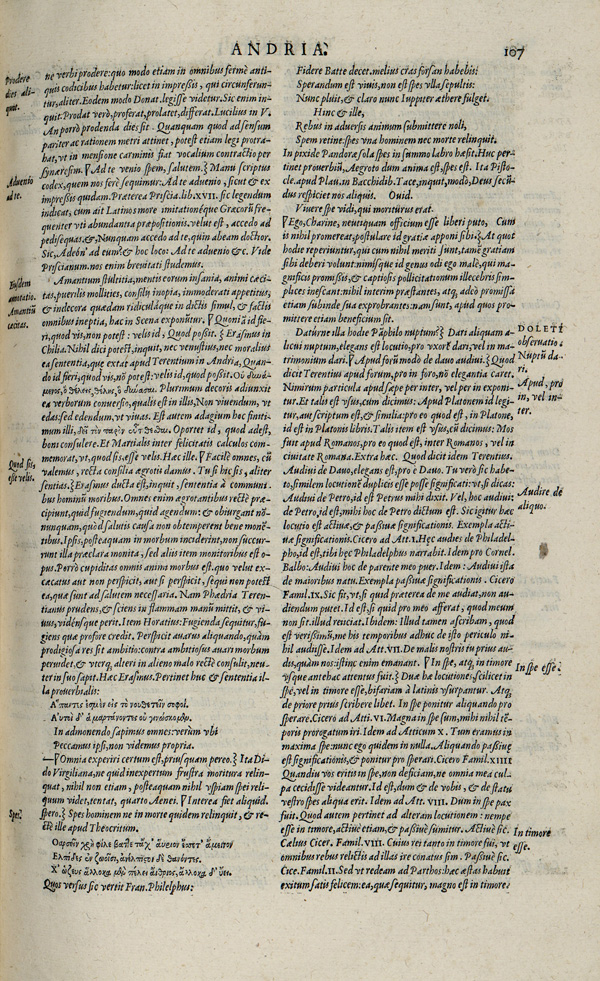 ANDRIA.
107
Prodere
dies ali
quit.
ne verbi prodere: quo modo etiam in omnibus fermè anti-
quis codicibus habetur: licet in impressis, qui circunferun-
tur, aliter. Eodem modo Donat. legisse videtur. Sic enim in-
quit: Prodat verò, proferat, prolatet, differat. Lucilius in V.
An porrò prodenda dies sit. Quanquam quod ad sensum
pariter ac rationem metri attinet, potest etiam legi protra-
hat, vt in mensione carminis fiat vocalium contractio per
synæresim. Ad te venio spem, salutem. Manu scriptus
codex, quem nos ferè sequimur: Ad te aduenio, sicut & ex
impressis quidam. Præterea Priscia. lib. XVII. sic legendum
indicat, cum ait Latinos more imitationéque Græcorū fre-
quenter vti abundantia præpositionis. velut est, accedo ad
pedisequas: &, Nunquam accedo ad te, quin abeam doctior.
Sic, Adeón' ad eum? & hoc loco: Ad te aduenio &c. Vide
Priscianum. nos enim breuitati studemus.
Aduenio
ad te.
Amantum stultitia, mentis eorum insania, animi cæci-
tas, puerilis mollities, consilij inopia, immoderati appetitus,
& indecora quædam ridiculáque in dictis simul, & factis
omnibus ineptia, hac in Scena exponūtur. Quoniā id fie-
ri, quod vis, non potest: velis id, Quod possit. Erasmus in
Chilia. Nihil dici potest, inquit, nec venustius, nec moralius
ea sententia, quæ extat apud Terentium in Andria, Quan-
do id fieri, quod vis, nō potest: velis id, quod possit.
Plurimum decoris adiunxit
ea verborum conuersio, qualis est in illis, Non viuendum, vt
edas: sed edendum, vt viuas. Est autem adagium hoc finiti-
mum illi, Oportet id, quod adest,
boni consulere. Et Martialis inter felicitatis calculos com-
memorat, vt, quod sis, esse velis. Hæc ille. Facilè omnes, cū
valemus, recta consilia ægrotis damus. Tu si hîc sis, aliter
sentias. Erasmus ducta est, inquit, sententia à communi-
bus hominū moribus. Omnes enim ægrotantibus rectè præ-
cipiunt, quid fugiendum, quid agendum: & obiurgant nō-
nunquam, quòd salutis causa non obtemperent bene monē-
tibus. Ipsi, postea quam in morbum inciderint, non succur-
runt illa præclara monita, sed aliis item monitoribus est o-
pus. Porrò cupiditas omnis animi morbus est, quo velut ex-
cæcatus aut non perspicit, aut si perspicit, sequi non potest
ea, quæ sunt ad salutem necessaria. Nam Phædria Teren-
tianus prudens, & sciens in flammam manū mittit, & vi-
uus, vidénsque perit. Item Horatius: Fugienda sequitur, fu-
giens quæ profore credit. Perspicit auarus aliquando, quàm
prodigiosa res sit ambitio: contra ambitiosus auari morbum
peruidet, & vterq; alteri in alieno malo rectè consulit, neu-
ter in suo sapit. Hæc Erasmus. Pertinet huc & sententia il-
la prouerbialis:
Eiusdem
Amantiū
cæcitas.
Quod sis,
esse velis.
In admonendo sapimus omnes: verùm vbi
Peccamus ipsi, non videmus propria.
—Omnia experiri certum est, priusquam pereo. Ita Di-
do Virgiliana, ne quid inexpertum frustra moritura relin-
quat, nihil non etiam, posteaquam nihil vspiam spei reli-
quum videt, tentat, quarto Aenei. Interea fiet aliquid,
spero. Spes hominem ne in morte quidem relinquit, & re-
ctè ille apud Theocritum.
Spes.
Quos versus sic vertit Fran. Philelphus:
Fidere Batte decet. melius cras forsan habebis:
Sperandum est viuis, non est spes vlla sepultis:
Nunc pluit, & claro nunc Iuppiter æthere fulget.
Hinc & ille,
Rebus in aduersis animum submittere noli,
Spem retine: spes vna hominem nec morte relinquit.
In pixide Pandoræ sola spes in summo labro hæsit. Huc per-
tinet prouerbiū, Aegroto dum anima est, spes est. Ita Pisto-
cle. apud Plau. in Bacchidib. Tace, inquit, modò, Deus secū-
dus respiciet nos aliquis. Ouid.
Viuere spe vidi, qui moriturus erat.
Ego, Charine, neutiquam officium esse liberi puto, Cum
is nihil promereat, postulare id gratiæ apponi sibi. At quot
hodie reperiuntur, qui cum nihil meriti sunt, tamē gratiam
sibi deberi volunt: nimísque id genus odi ego malè, qui ma-
gnificis promissis, & captiosis pollicitationum illecebris sim-
plices inescant. nihil interim præstantes, atq; adeò promissa
etiam subinde sua exprobrantes: nam sunt, apud quos pro-
mittere etiam beneficium sit.
Datúrne illa hodie Pāphilo nuptum? Dati aliquam a-
licui nuptum, elegans est locutio, pro vxorē dari, vel in ma-
trimonium dari. Apud forū modo de dauo audiui. Quod
dicit Terentius apud forum, pro in foro, nō elegantia caret.
Nimirum particula apud sæpe per inter, vel per in exponi-
tur. Et talis est vsus, cum dicimus: Apud Platonem id legi-
tur, aut scriptum est, & similia: pro eo quod est, in Platone,
id est in Platonis libris. Talis item est vsus, cū dicimus: Mos
fuit apud Romanos, pro eo quod est, inter Romanos, vel in
ciuitate Romana. Extra hæc. Quod dicit idem Terentius.
Audiui de Dauo, elegans est, pro è Dauo. Tu verò sic habe-
to, similem locutionē duplicis esse posse significati: vt, si dicas:
Audiui de Petro, id est Petrus mihi dixit. Vel, hoc audiui:
de Petro, id est, mihi hoc de Petro dictum est. Sic igitur hæc
locutio est actiuæ, & passiuæ significationis. Exempla acti-
uæ significationis. Cicero ad Att. I. Hæc audies de Philadel-
pho, id est, tibi hęc Philadelphus narrabit. Idem pro Cornel.
Balbo: Audiui hoc de parente meo puer. Idem: Audiui ista
de maioribus natu. Exempla passiuæ significationis. Cicero
Fam. IX. Sic fit, vt, si quid præterea de me audiat, non au-
diendum putet. Id est, si quid pro meo afferat, quod meum
non sit. illud reiiciat. Ibidem: Illud tamen ascribam, quod
est verissimū, me his temporibus adhuc de isto periculo ni-
hil audisse. Idem ad Att. VII. De malis nostris tu prius au-
dis, quàm nos: istinc enim emanant. In spe, atq; in timore
vsque antehac attentus fuit. Duæ hæ locutiones: scilicet in
spe, vel in timore esse, bifariam à latinis vsurpantur. Atq;
de priore prius scribere libet. In spe ponitur aliquando pro
sperare. Cicero ad Atti. VI. Magna in spe sum, mihi nihil tē-
poris prorogatum iri. Idem ad Atticum X. Tum eramus in
maxima spe: nunc ego quidem in nulla. Aliquando passiuę
est significationis, & ponitur pro sperari. Cicero Famil. XIIII
Quandiu vos eritis in spe, non deficiam, ne omnia mea cul-
pa cecidisse videantur. Id est, dum & de vobis, & de statu
vestro spes aliqua erit. Idem ad Att. VIII. Dum in spe pax
fuit. Quod autem pertinet ad alteram locutionem: nempe
esse in timore, actiuè etiam, & passiuè sumitur. Actiuè sic.
Cælius Cicer. Famil. VIII. Cuius rei tanto in timore fui, vt
omnibus rebus relictis ad illas ire conatus sim. Passiuè sic.
Cice. Famil. II. Sed vt redeam ad Parthos: hæc æstas habuit
exitum satis felicem: ea, quæ sequitur, magno est in timore.
DOLETI
obseruatio.
Nuptū da-
ri.
Apud, pro
in, vel in-
ter.
Audire de
aliquo.
In spe esse.
In timore
esse.